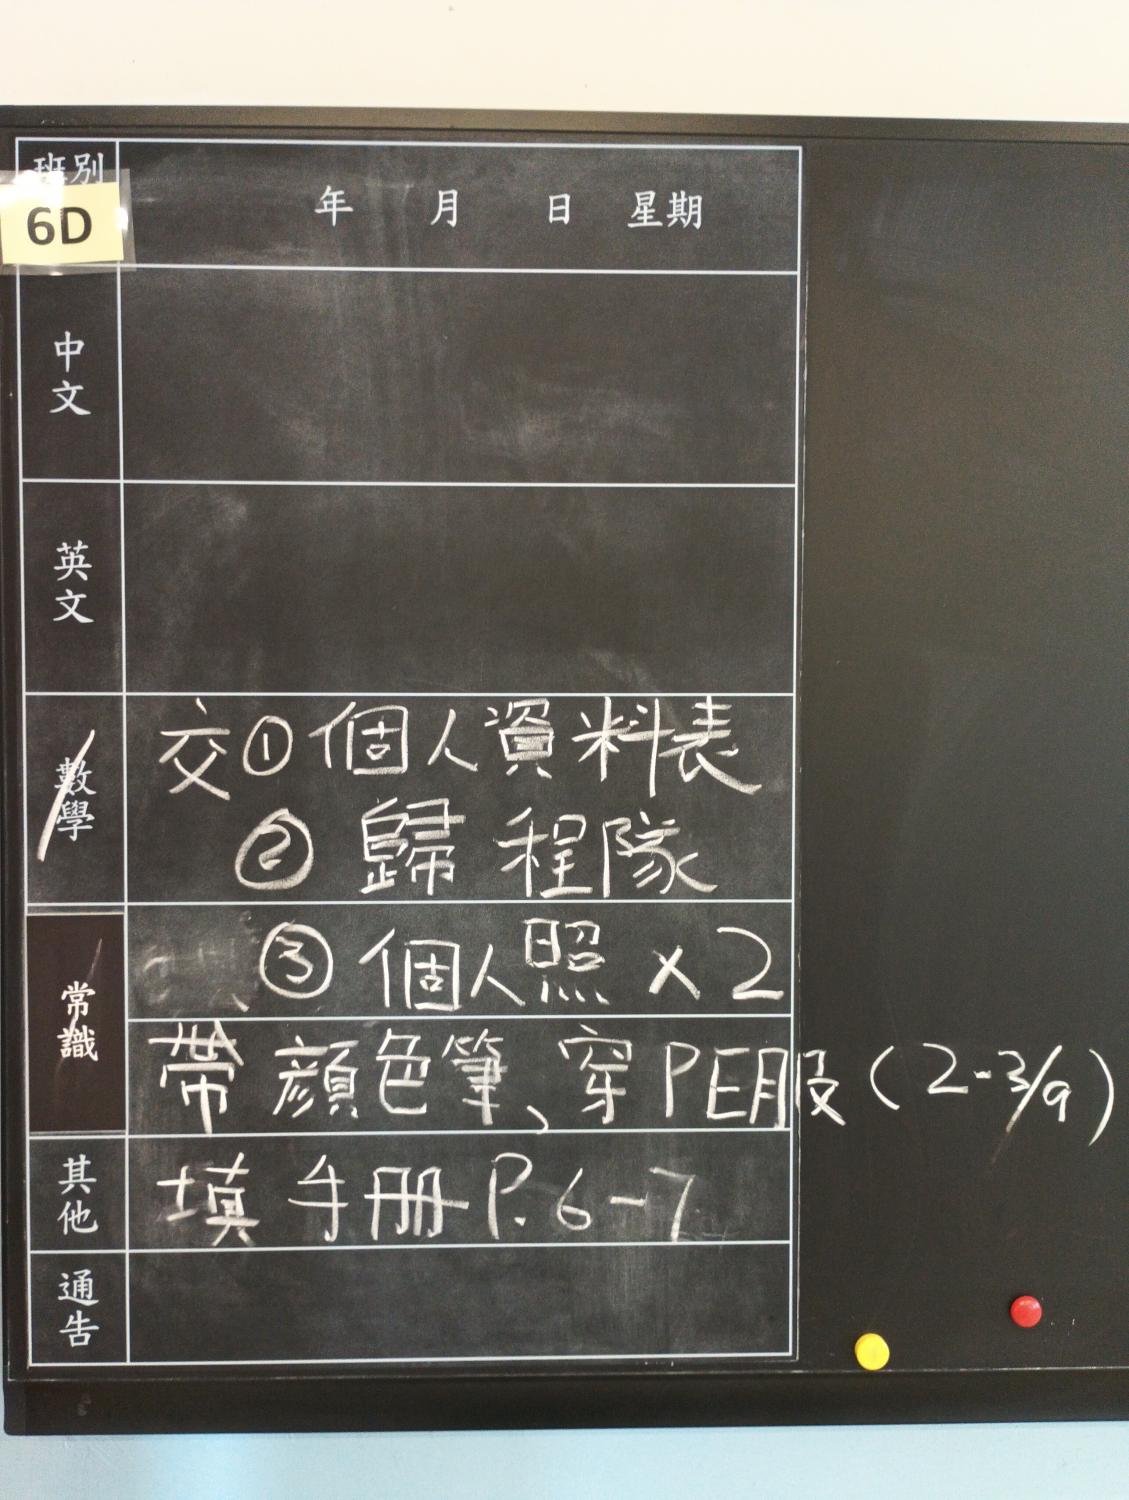 班別
6D
年 月 日 星期
中文
英文
數學
交①個人資料表
②歸程隊
常識
③個人照 x2
帶顏色筆、穿PE服(2-3/9)
其他
填手册P.6-7
通告